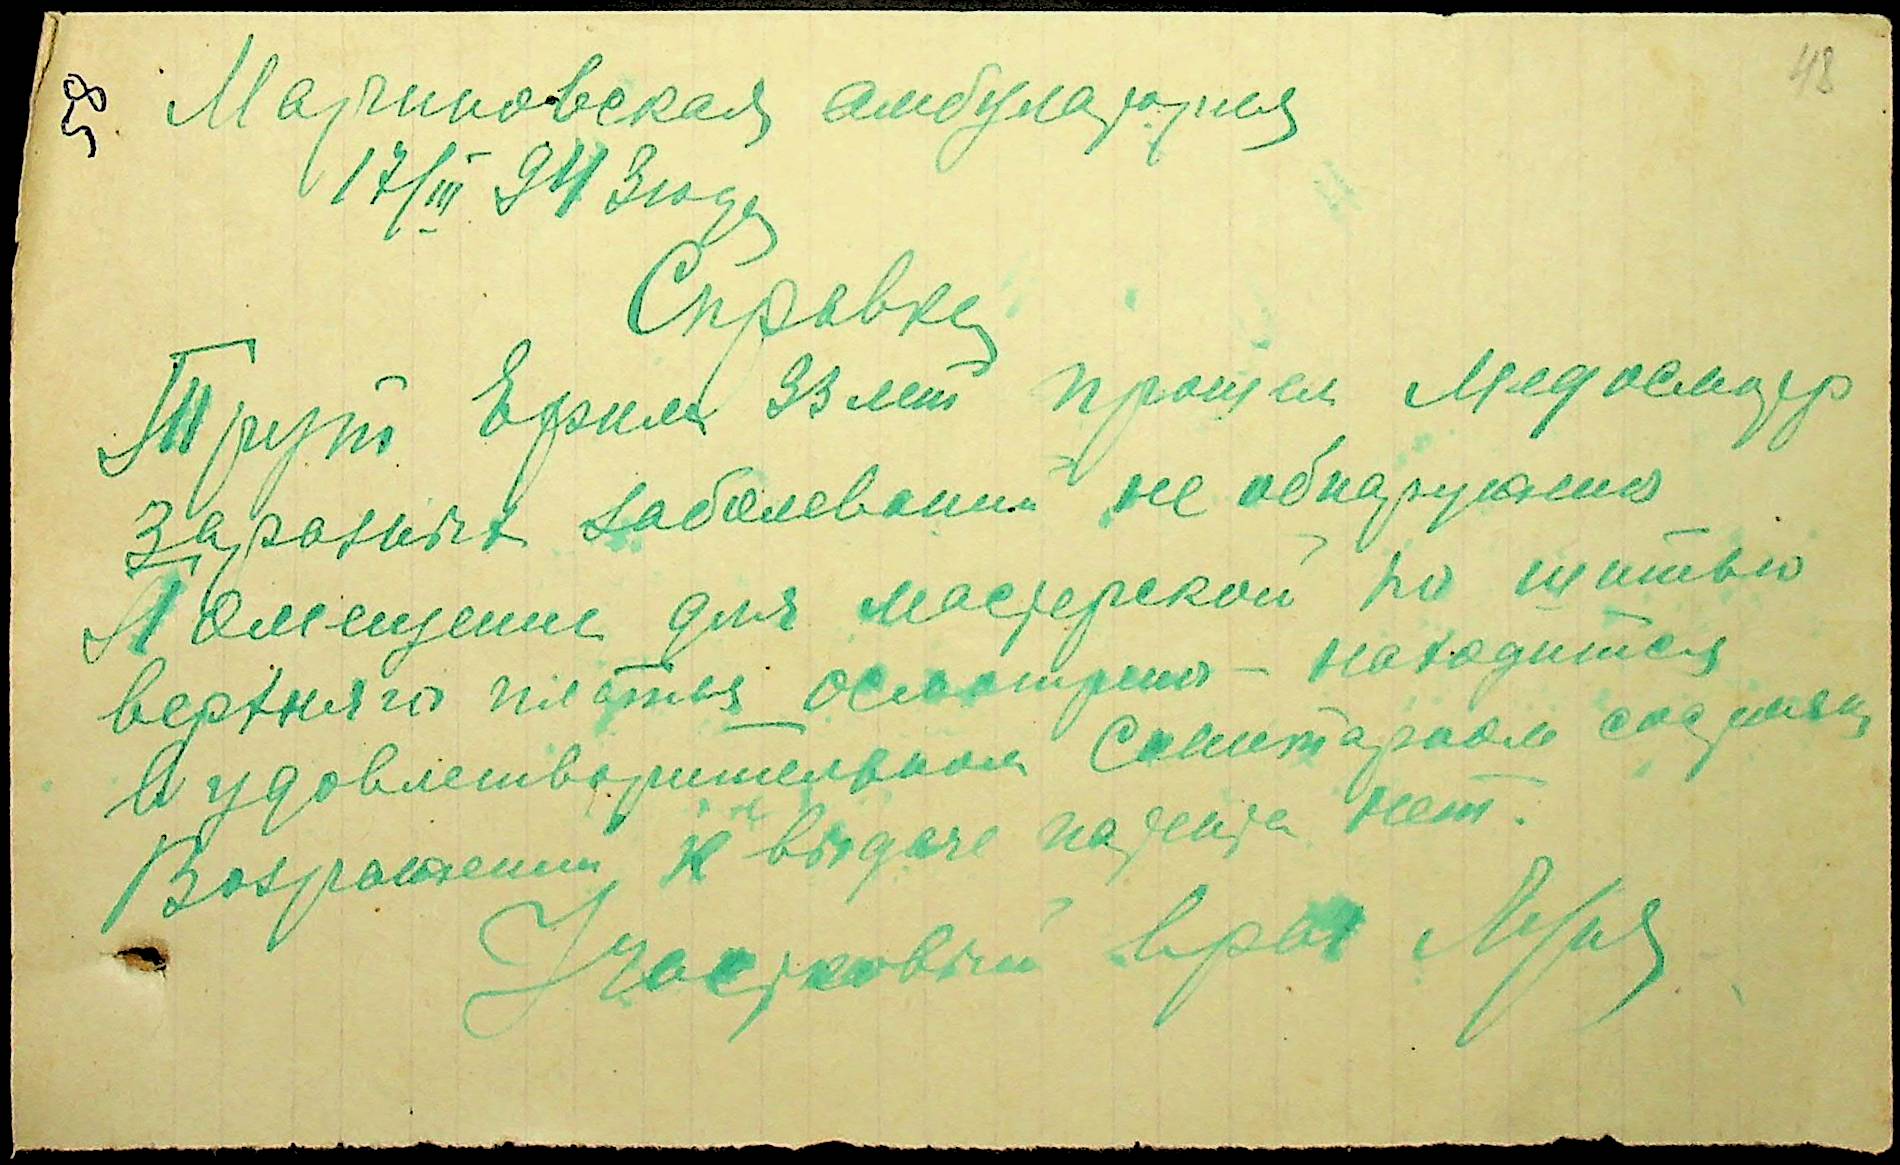 48
58
Мартиновская амбулатория
17/III 943 года
Справка
Прут Ефим 33 лет прошел медосмотр
Заразных заболеваний не обнаружено
Помещение для мастерской по шитью
верхняго платья осмотрено – находится
в удовлетворительном санитарном состоянии
Возражений к выдаче патента нет.
Участковый врач